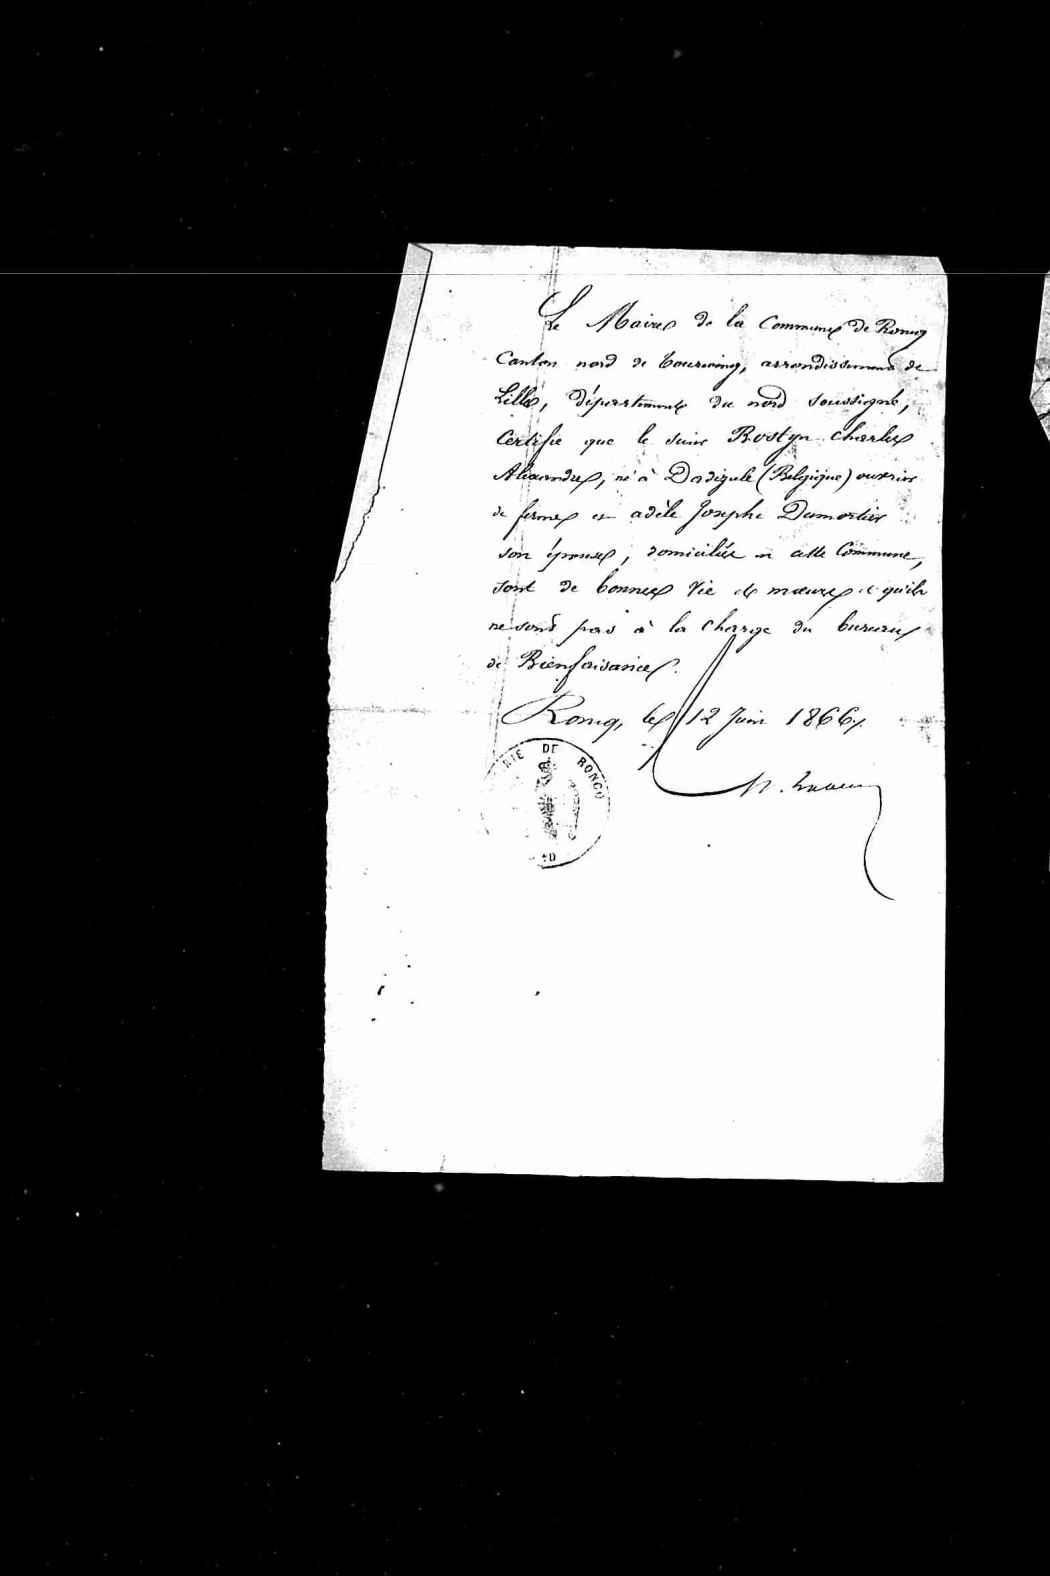 Le Maire de la Commune de Roncq
Canton nord de Tourcoing, arrondissement de
Lille, département du nord soussigné,
Certifie que le sieur Rostyn Charles
Alexandre, né à Dadizeele (Belgique) ouvrier
de ferme et adèle Josephe Dumortier
son épouse, domiciliés en cette Commune,
sont de bonnes vie et mœurs et qu'ils
ne sont pas à la charge du bureau
de Bienfaisance.
Roncq, le 12 Juin 1866
RIE DE RONCQ